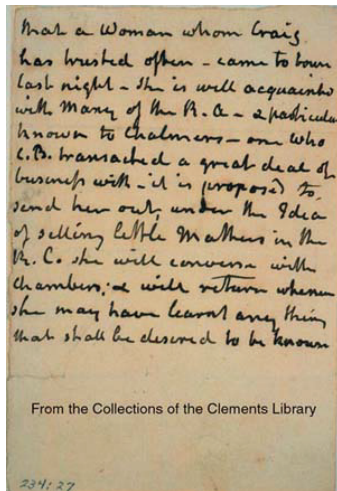 that a Woman whom Craig
has trusted often - came to town
last night - she is well acquainted
with Many of the R. A - & particular
known to Chalmers - one who
C.B. transacted a great deal of
business with - it is proposed to
send her out, under the Idea
of selling little Mathers in the
R. C. she will converse with
chambers; & will return whenever
she may have learnt any thing
that shall be desired to be known
From the Collections of the Clements Library
234:27